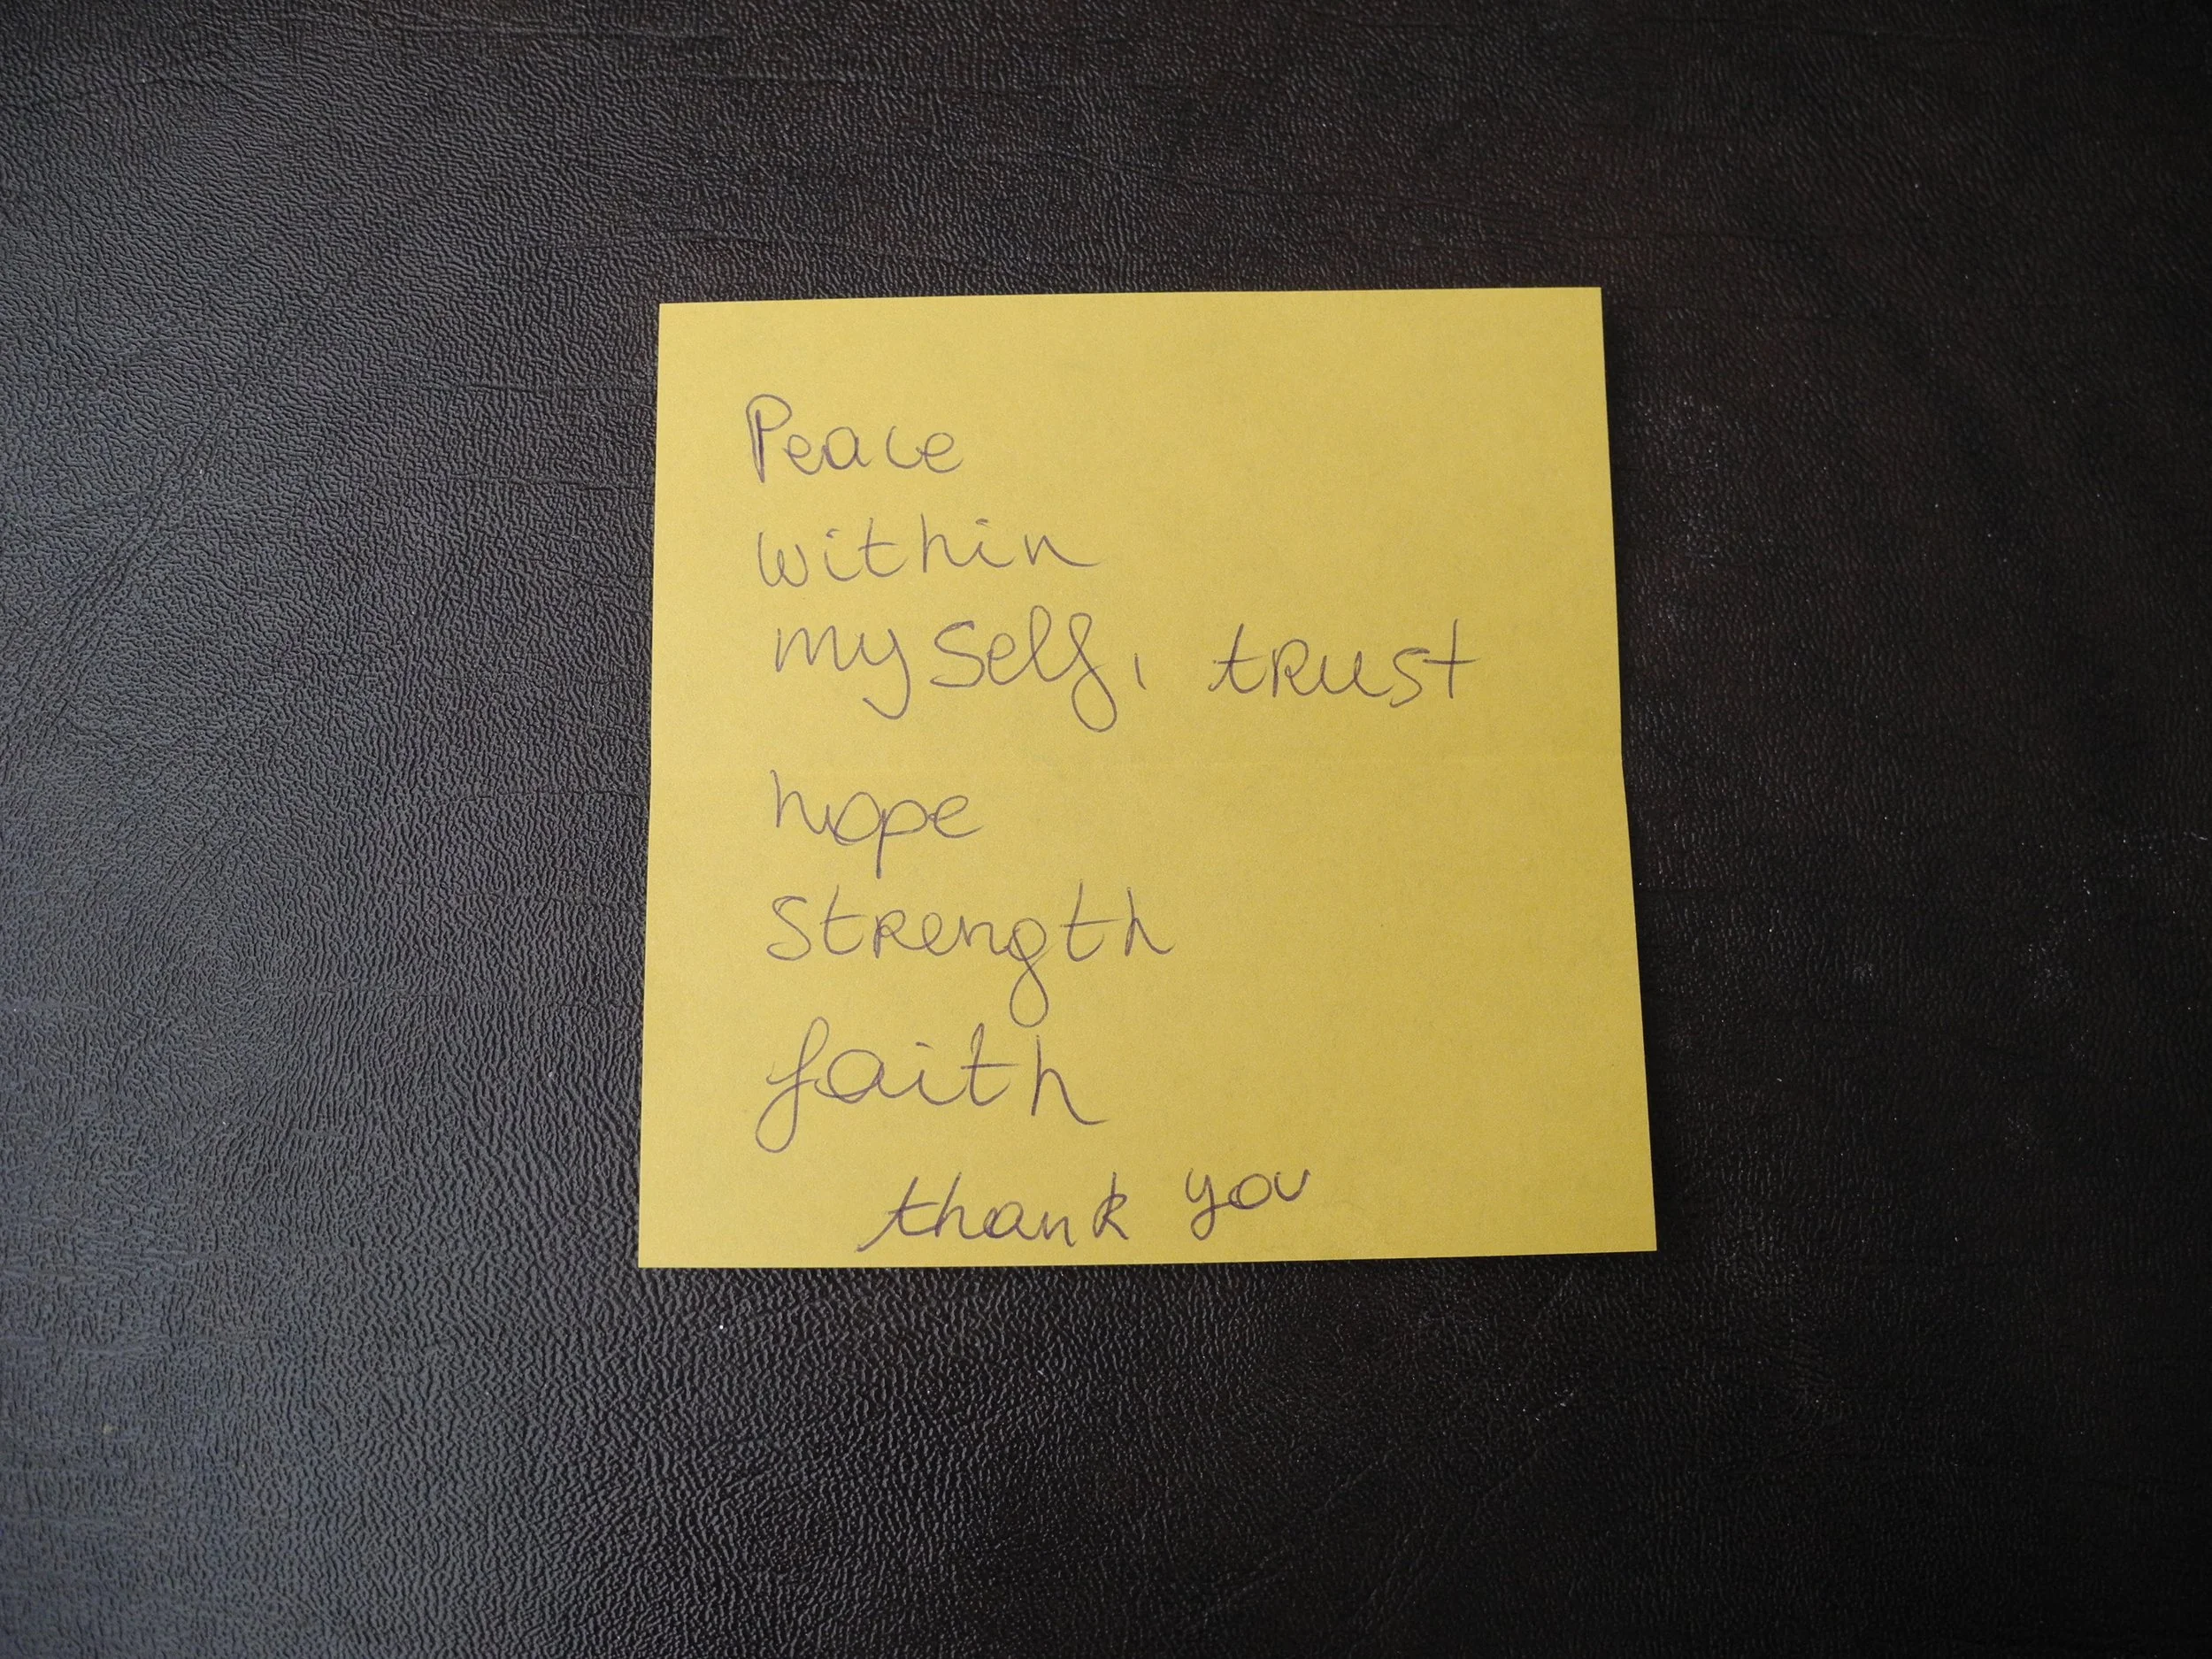 Peace
within
my self, trust
hope
strength
faith
thank you